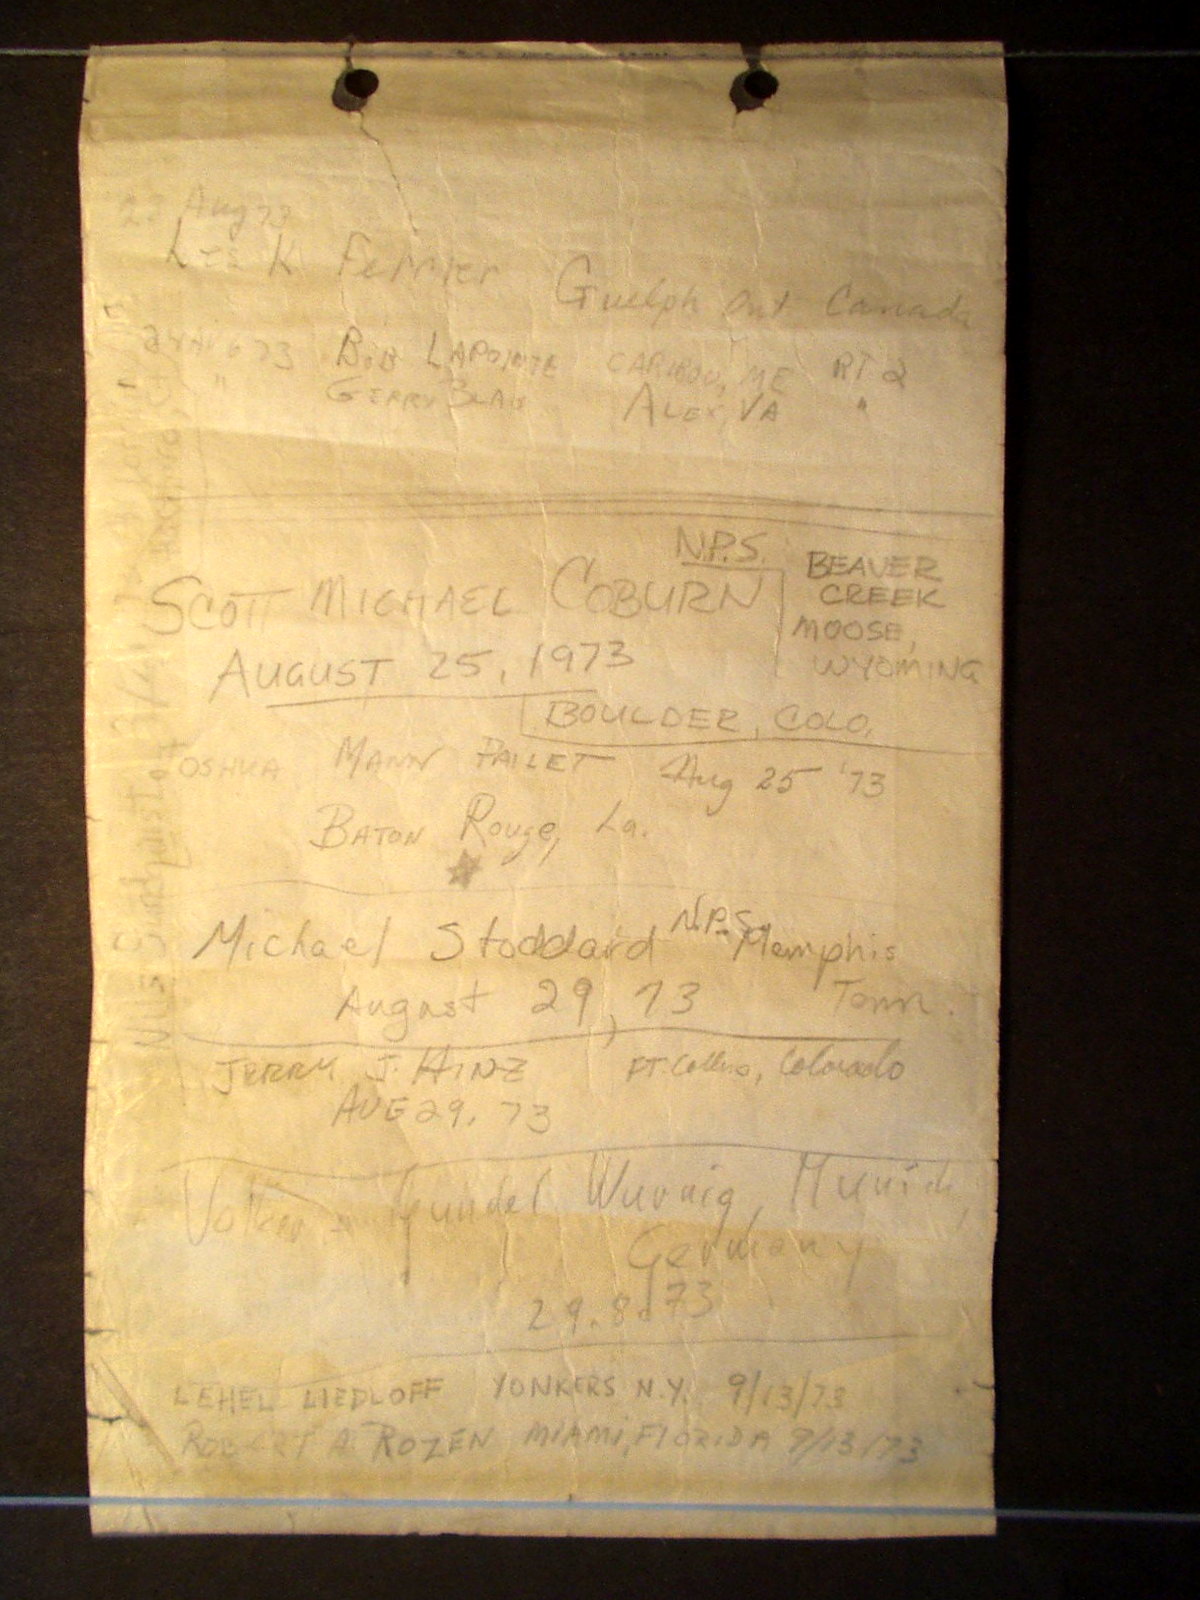 23 Aug 73
Lee K Ferrier Guelph Ont Canada
73 BOB LAPOINTE CARIBOU, ME RT 2
" GERRY ALEX, VA "
N.P.S. BEAVER
CREEK
MOOSE,
WYOMING
SCOTT MICHAEL COBURN
AUGUST 25, 1973
BOULDER, COLO.
JOSHUA MANN PAILET Aug 25 '73
BATON Rouge, La.
Michael Stoddard N.P.S. Memphis
August 29, 73 Tenn.
JERRY J. HINZ FT. Collins, Colorado
AUG 29, 73
Volker Gundel Wurnig, Munich,
Germany
29.8.73
LEHEL LIEDLOFF YONKERS N.Y. 9/13/73
ROBERT A. ROZEN MIAMI, FLORIDA 9/13/73